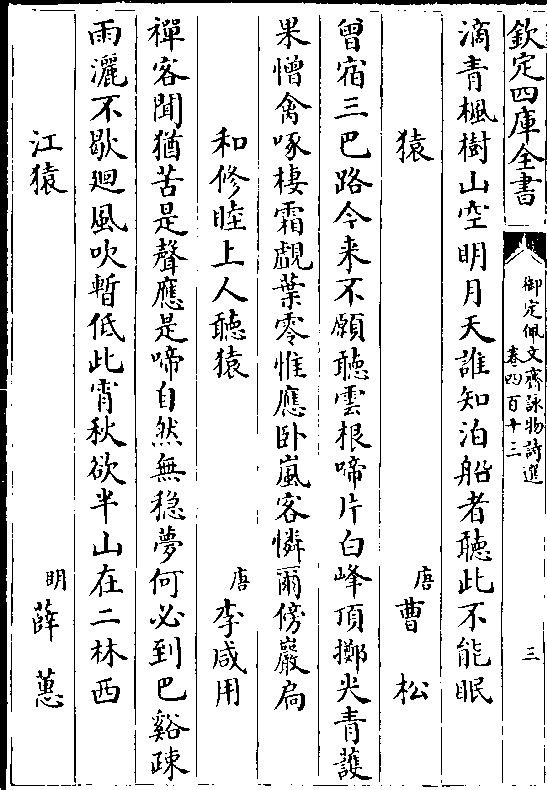 欽定四庫全書
御定佩文齋詠物詩選
卷四百十三
三
滴青楓樹山空明月天誰知泊船者聽此不能眠
猿
唐 曹松
曾宿三巴路今来不願聽雲根啼片白峰頂擲尖青䕶
果憎禽啄棲霜覷葉零惟應卧嵐客憐爾傍巖扃
和修睦上人聽猿
唐 李咸用
禪客聞猶苦是聲應是啼自然無穏夢何必到巴谿疎
雨灑不歇廻風吹暫低此宵秋欲半山在二林西
江猿
明 薛蕙